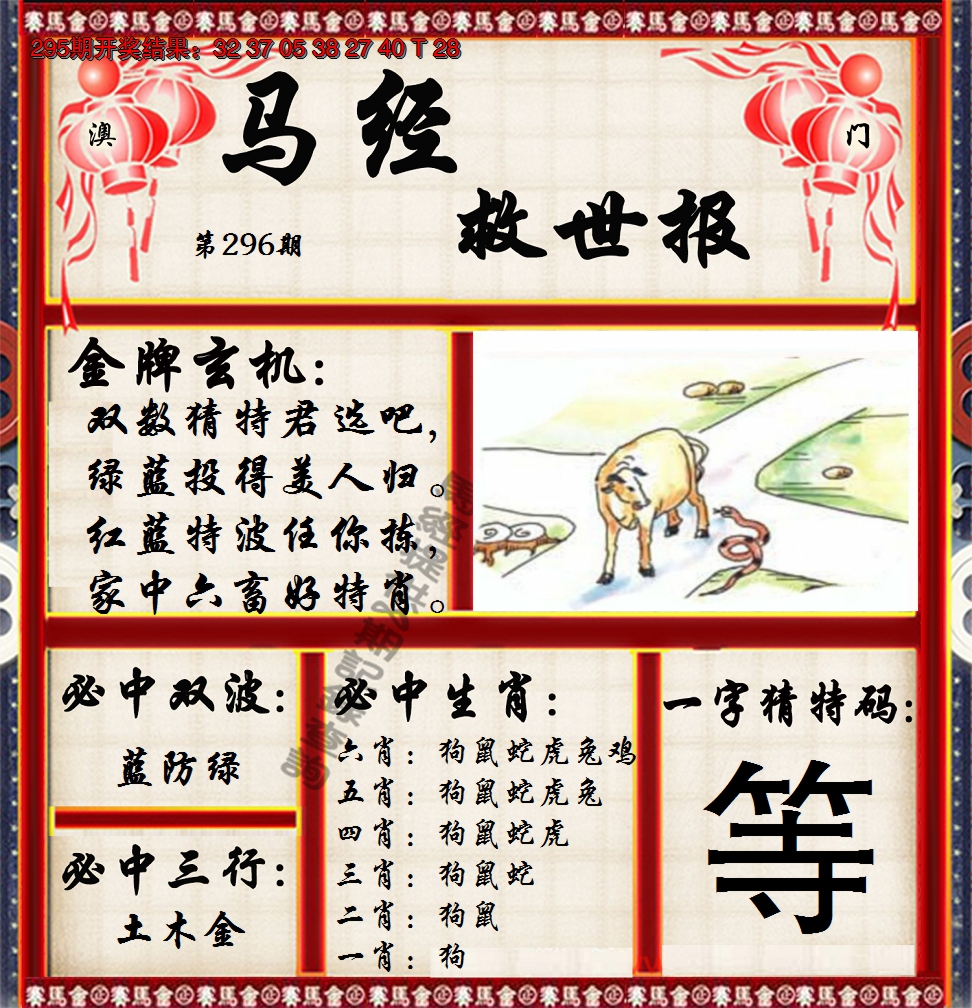 賽馬會賽馬會賽馬會賽馬會賽馬會賽馬會
295期开奖结果：32 37 05 38 27 40 T 28
澳
门
马经
救世报
第296期
金牌玄机：
双数猜特君选吧，
绿蓝投得美人归。
红蓝特波任你拣，
家中六畜好特肖。
必中双波：
蓝防绿
必中三行：
土木金
必中生肖：
六肖：狗鼠蛇虎兔鸡
五肖：狗鼠蛇虎兔
四肖：狗鼠蛇虎
三肖：狗鼠蛇
二肖：狗鼠
一肖：狗
一字猜特码：
等